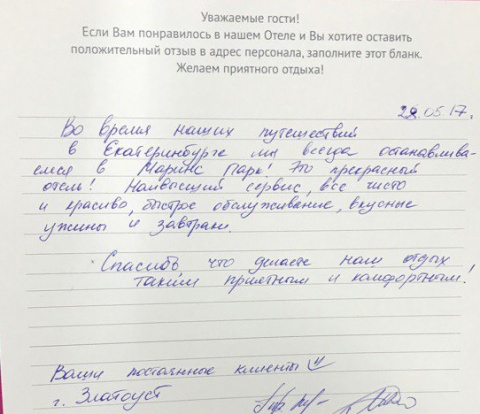 Уважаемые гости!
Если Вам понравилось в нашем Отеле и Вы хотите оставить
положительный отзыв в адрес персонала, заполните этот бланк.
Желаем приятного отдыха!
22.05.17.
Во время наших путешествий
в Екатеринбурге мы всегда останавлива-
емся в Маринс Парк! Это прекрасный
отель! Наивысший сервис, все чисто
и красиво, быстрое обслуживание, вкусные
ужины и завтраки.
Спасибо, что делаете наш отдых
таким приятным и комфортным!
Ваши постоянные клиенты
г. Златоуст